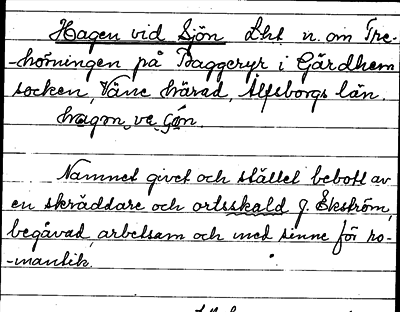 Hagen vid Sjön Lht n. om Tre-
-hörningen på Baggeryr i Gärdhem
socken, Väne härad, Älfsborgs län.
hagen ve Són.
Namnet givet och stället bebott av
en skräddare och ortsskald J. Ekström,
begåvad, arbetsam och med sinne för ro-
-mantik.